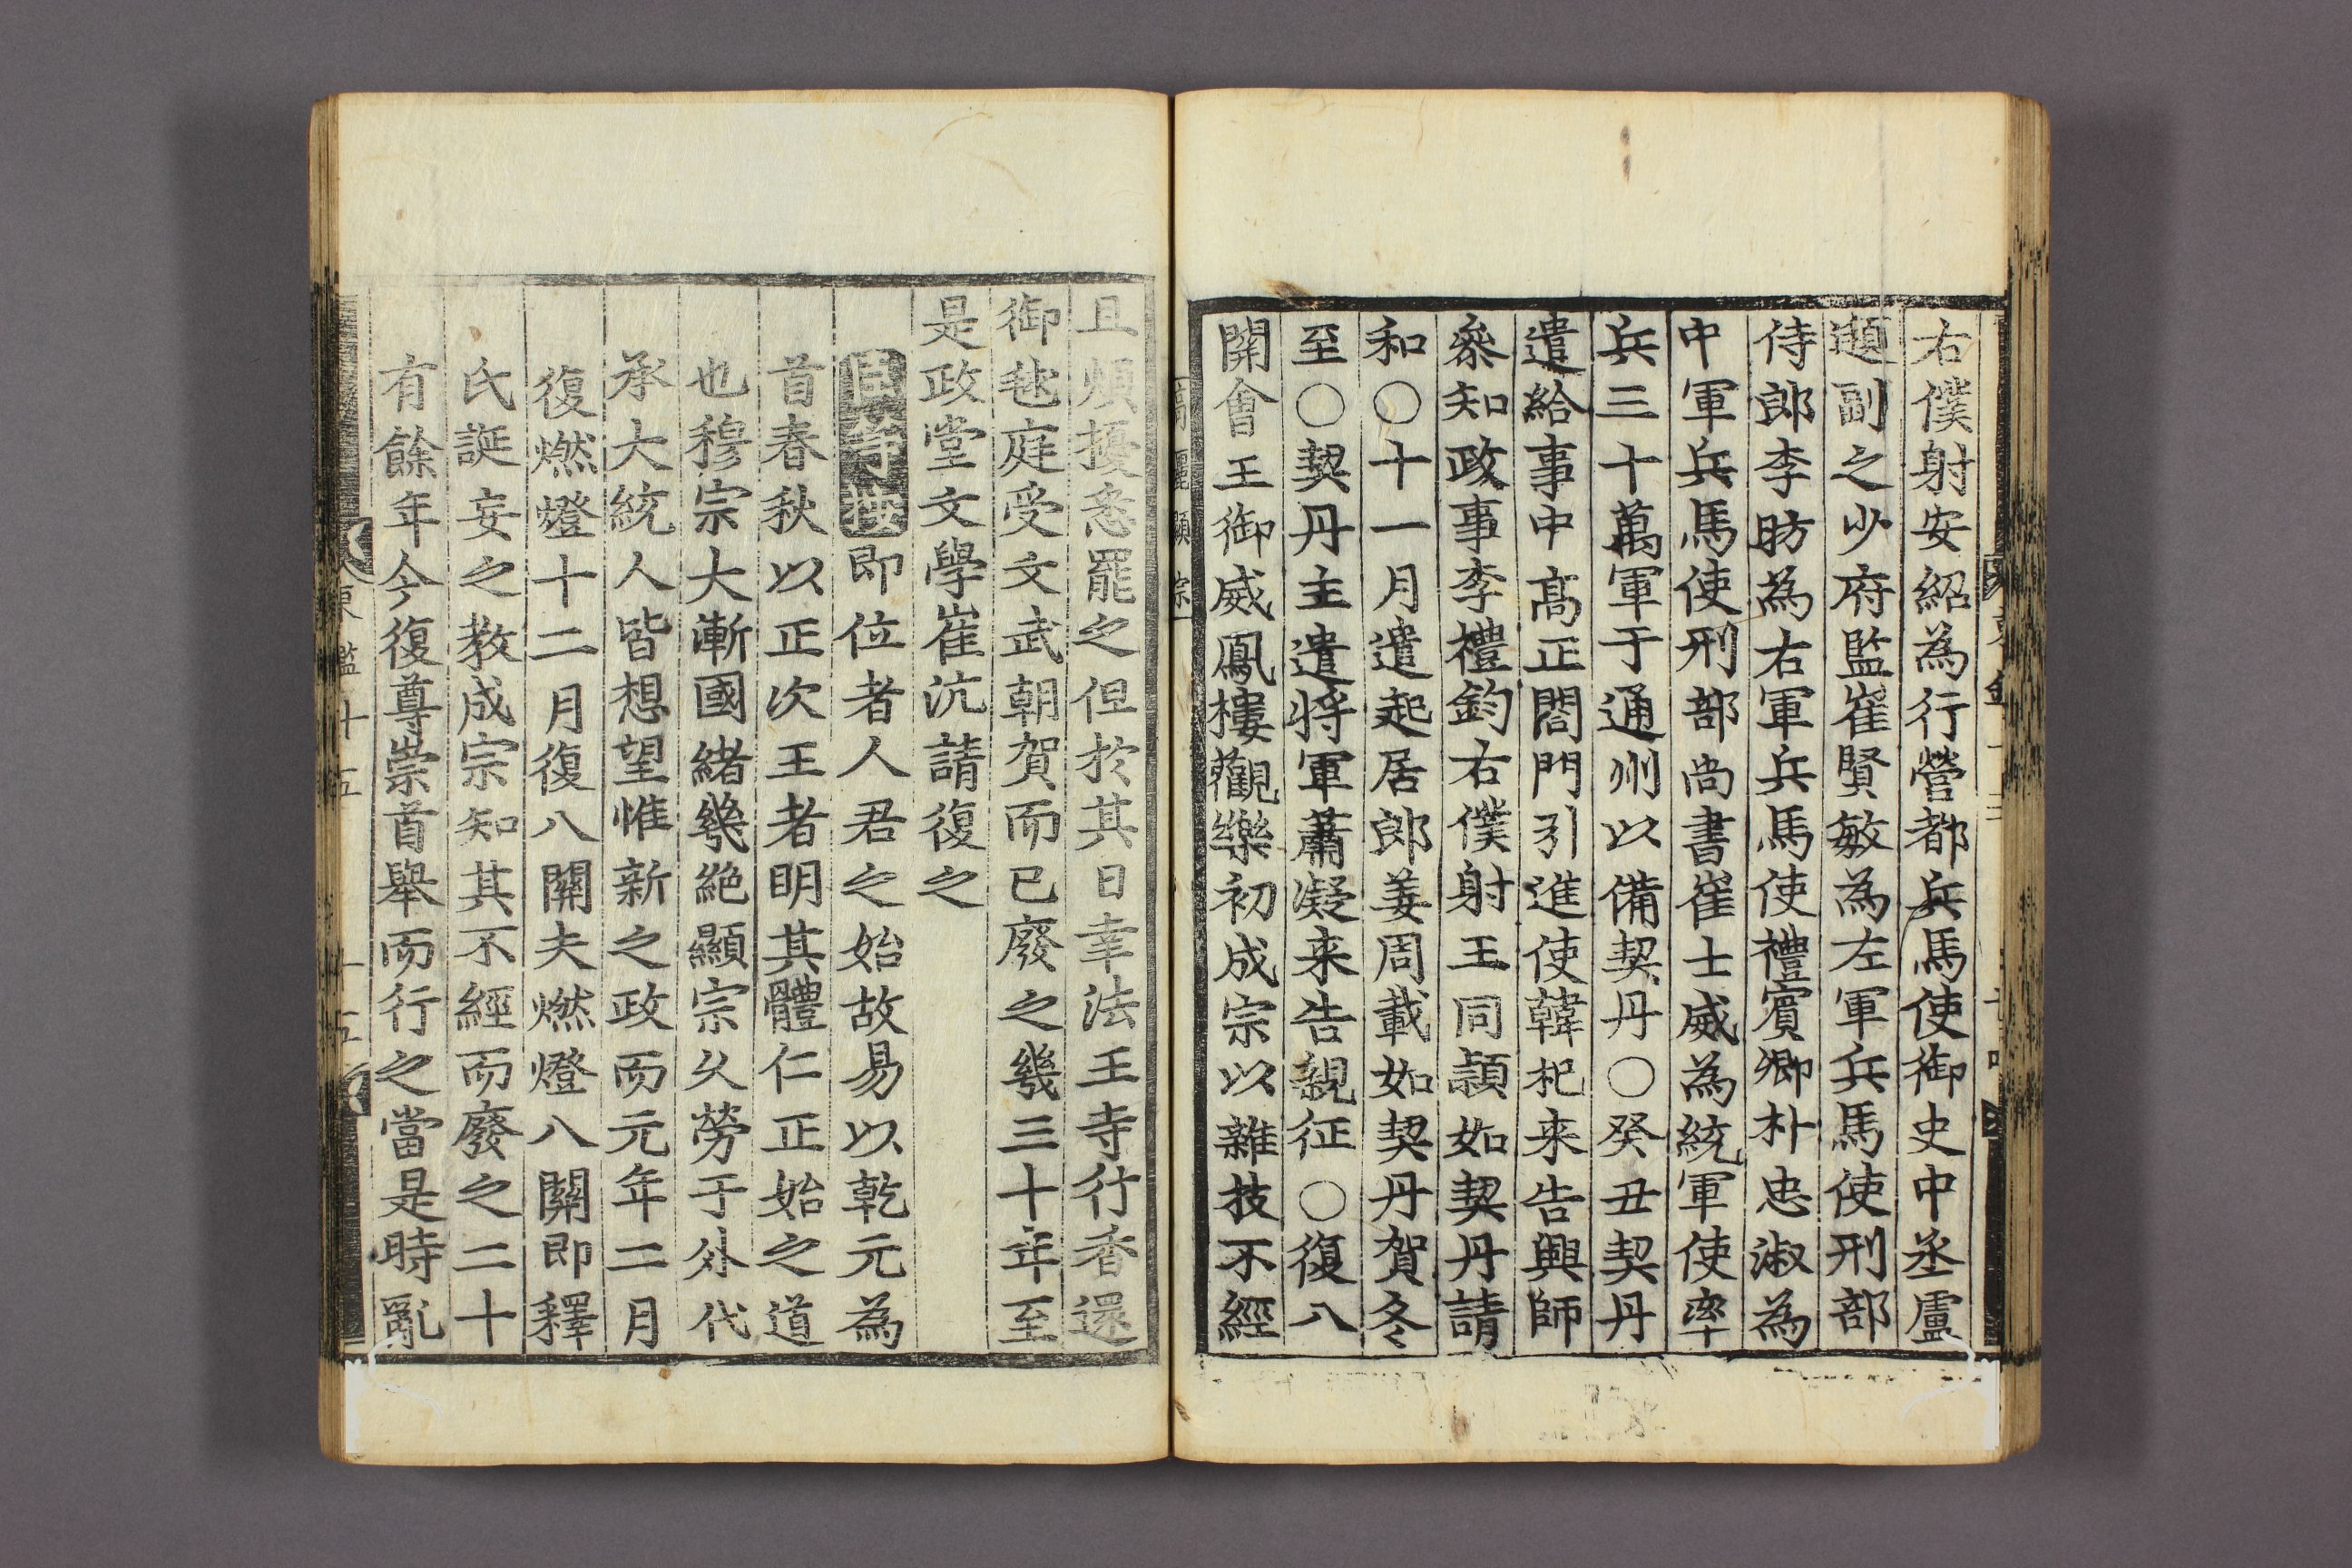 右僕射安紹為行營都兵馬使御史中丞盧
顗副之少府監崔賢敏為左軍兵馬使刑部
侍郎李昉為右軍兵馬使禮賓卿朴忠淑為
中軍兵馬使刑部尚書崔士威為統軍使率
兵三十萬軍于通州以備契丹〇癸丑契丹
遣給事中高正閤門引進使韓杞来告興師
叅知政事李禮鈞右僕射王同頴如契丹請
和〇十一月遣起居郎姜周載如契丹賀冬
至〇契丹主遣將軍蕭凝来告親征〇復八
關會王御威鳳樓觀樂初成宗以雜技不經
高麗顯宗
且煩擾悉罷之但於其日幸法王寺行香還
御毬庭受文武朝賀而已廢之幾三十年至
是政堂文學崔沆請復之
臣等按即位者人君之始故易以乾元為
首春秋以正次王者明其體仁正始之道
也穆宗大漸國緒幾絶顯宗久勞于外代
承大統人皆想望惟新之政而元年二月
復燃燈十二月復八關夫燃燈八關即釋
氏誕妄之教成宗知其不經而廢之二十
有餘年今復尊崇首舉而行之當是時亂
東鑑十五 十五